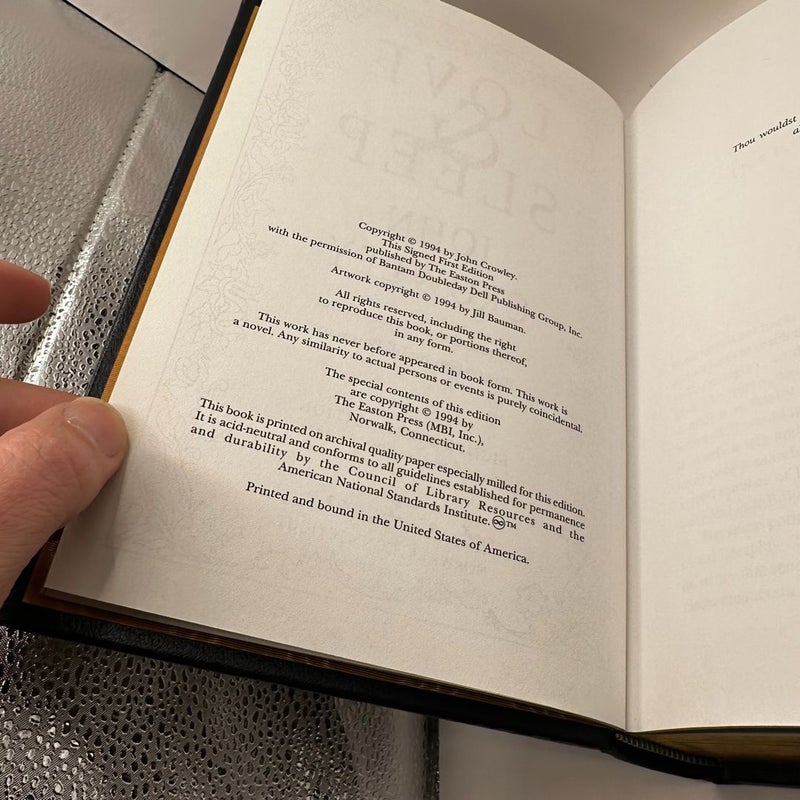 Copyright © 1994 by John Crowley.
This Signed First Edition
published by The Easton Press
with the permission of Bantam Doubleday Dell Publishing Group, Inc.
Artwork copyright © 1994 by Jill Bauman.
All rights reserved, including the right
to reproduce this book, or portions thereof,
in any form.
This work has never before appeared in book form. This work is
a novel. Any similarity to actual persons or events is purely coincidental.
The special contents of this edition
are copyright © 1994 by
The Easton Press (MBI, Inc.),
Norwalk, Connecticut.
This book is printed on archival quality paper especially milled for this edition.
It is acid-neutral and conforms to all guidelines established for permanence
and durability by the Council of Library Resources and the
American National Standards Institute. ♾™
Printed and bound in the United States of America.
Thou wouldst
LOVE
&
SLEEP
JOHN